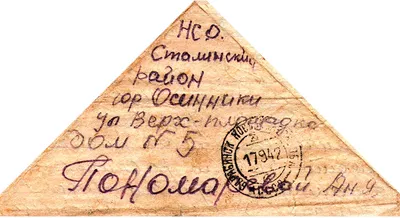 НСО.
Сталинский
район
гор Осинники
ул Верх-площадка
дом № 5
Пономар
17 9 42